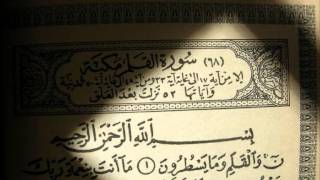 (٦٨) سورة القلم مكية
إلا من آية ١٧ إلى غاية ٣٣ ومن آية ٤٨ إلى غاية ٥٠ فمدنية
وآياتها ٥٢ نزلت بعد العلق
بِسْمِ اللَّهِ الرَّحْمَٰنِ الرَّحِيمِ
نٓ وَالْقَلَمِ وَمَا يَسْطُرُونَ ۝١ مَا أَنتَ بِنِعْمَةِ رَبِّكَ